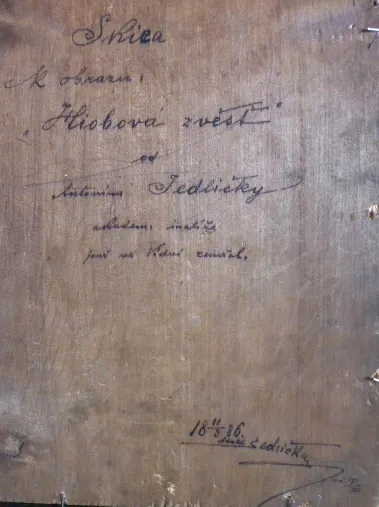 Skica
K obrazu:
"Hiobová zvěst"
od
Antonína Jedličky
akadem. malíře
jenž ve Vídni zemřel.
18 11/3 86.
Jedlička